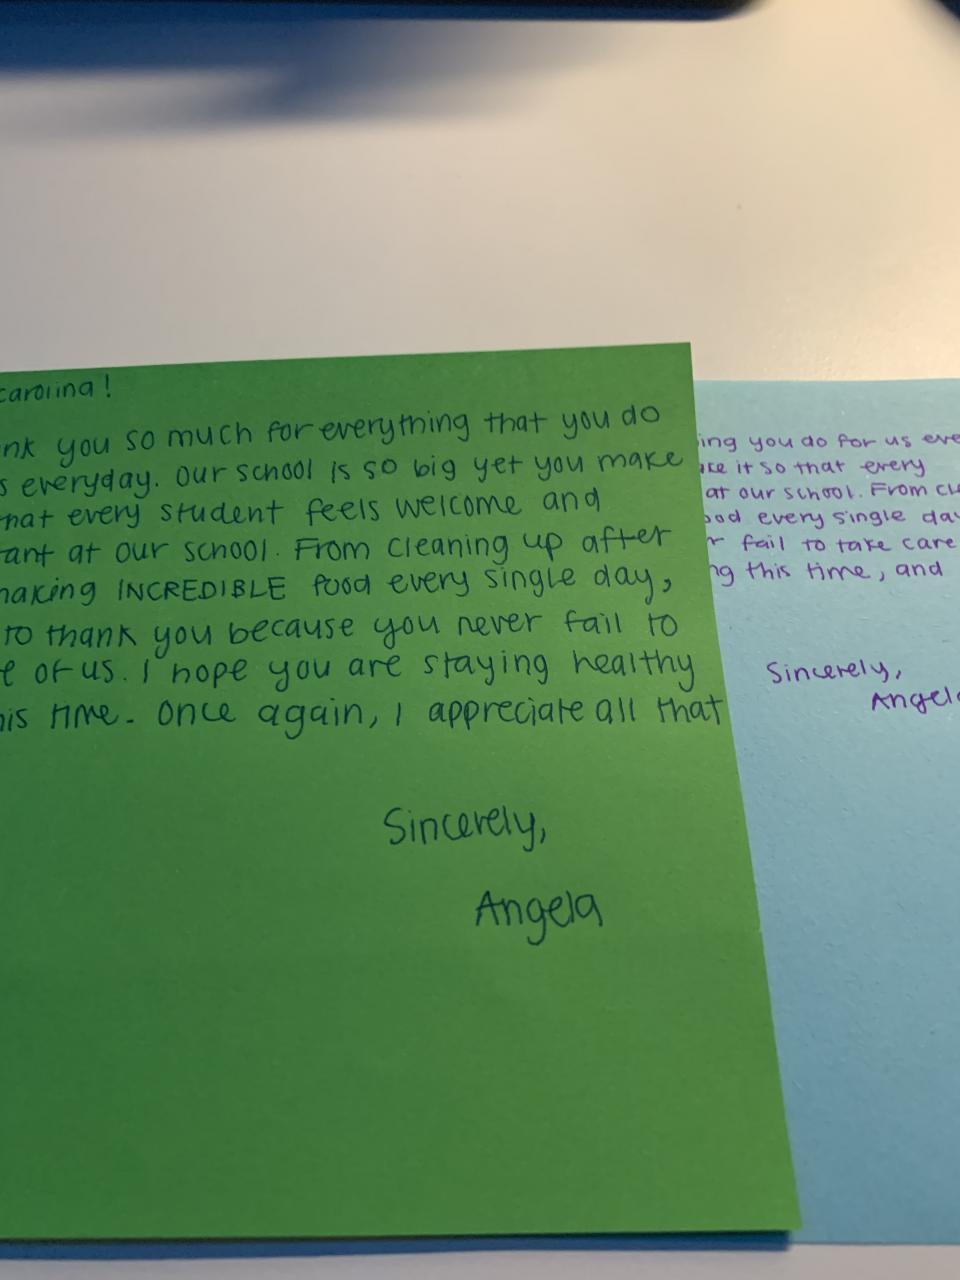 Carolina!
nk you so much for everything that you do
s everyday. Our school is so big yet you make
hat every student feels welcome and
tant at our school. From cleaning up after
making INCREDIBLE food every single day,
to thank you because you never fail to
e of us. I hope you are staying healthy
his time. Once again, I appreciate all that
Sincerely,
Angela
ing you do for us eve
ke it so that every
at our school. From cle
ood every single day
r fail to take care
ng this time, and
Sincerely,
Angela